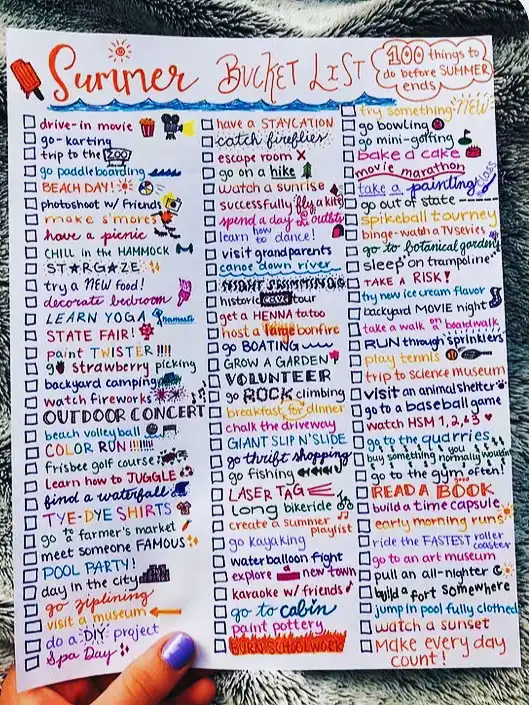 Summer BUCKET LIST
100 things to
do before SUMMER
ends
drive-in movie
go-karting
trip to the ZOO
go paddleboarding
BEACH DAY!
photoshoot w/ friends
make s'mores
have a picnic
CHILL in the HAMMOCK
ST★RG★ZE
try a NEW food!
decorate bedroom
LEARN YOGA namaste
STATE FAIR!
paint TWISTER !!!!
go strawberry picking
backyard camping
watch fireworks
OUTDOOR CONCERT
beach volleyball
COLOR RUN!!!!!!!
frisbee golf course
learn how to JUGGLE
find a waterfall
TYE-DYE SHIRTS
go to farmer's market
meet someone FAMOUS
POOL PARTY!
day in the city
go ziplining
visit a museum
do a DIY project
Spa Day
have a STAYCATION
catch fireflies
escape room
go on a hike
watch a sunrise
successfully fly a kite
spend a day @ the outlets
learn how to dance!
visit grandparents
canoe down river
NIGHT SWIMMING
historic cave tour
get a HENNA tatoo
host a large bonfire
go BOATING
GROW A GARDEN
VOLUNTEER
go ROCK climbing
breakfast for dinner
chalk the driveway
GIANT SLIP N' SLIDE
go thrift shopping
go fishing
LASER TAG
long bikeride
create a summer
playlist
go kayaking
waterballoon fight
explore a new town
karaoke w/ friends
go to cabin
paint pottery
BURN SCHOOLWORK
try something NEW
go bowling
go mini-golfing
bake a cake
movie marathon
take a painting class
go out of state
spikeball tourney
binge-watch a TV series
go to botanical gardens
sleep on trampoline
TAKE A RISK!
try new ice cream flavor
backyard MOVIE night
take a walk on a boardwalk
RUN through sprinklers
play tennis
trip to science museum
visit an animal shelter
go to a baseball game
watch HSM 1, 2, & 3
go to the quarries
buy something you normally wouldn't
go to the gym often!
READ A BOOK
build a time capsule
early morning runs
ride the FASTEST roller
coaster
go to an art museum
pull an all-nighter
build a fort somewhere
jump in pool fully clothed
watch a sunset
Make every day
count!